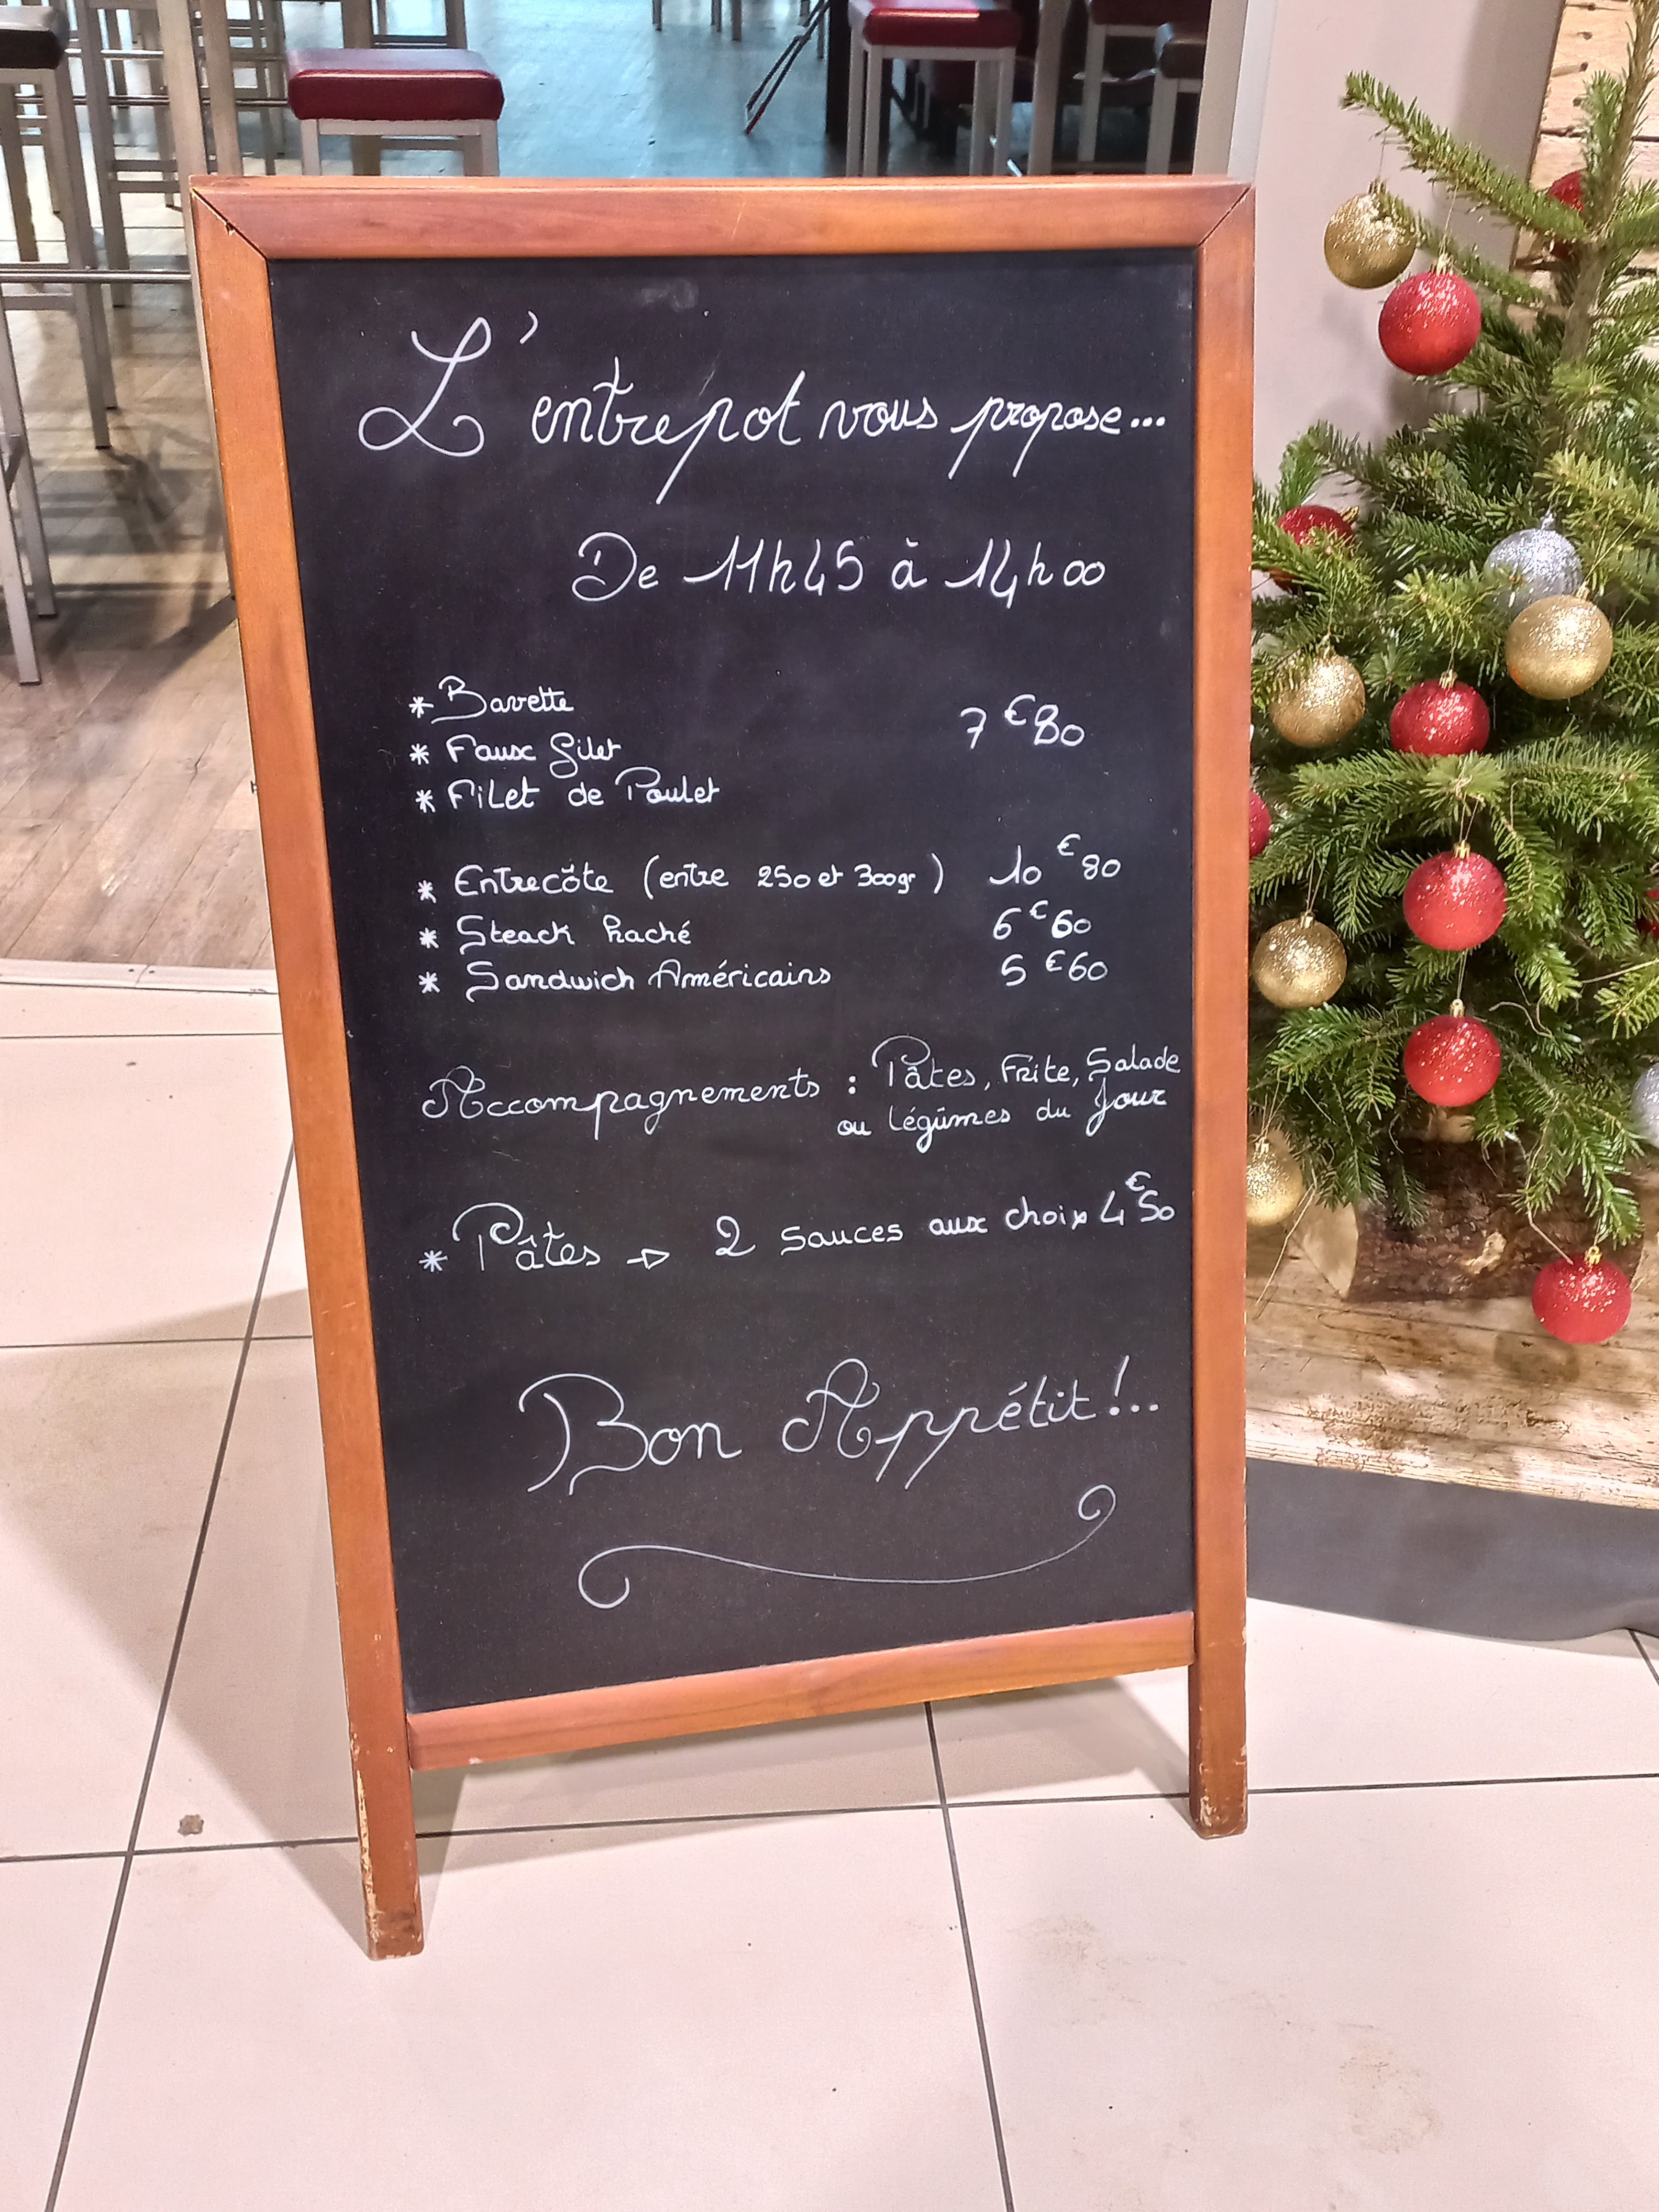 L'entrepot vous propose...
De 11h45 à 14h00
* Bavette
* Faux filet 7€80
* Filet de Poulet
* Entrecôte (entre 250 et 300gr) 10€80
* Steack haché 6€60
* Sandwich Américains 5€60
Accompagnements : Pâtes, Frite, Salade
ou légumes du jour
* Pâtes → 2 sauces aux choix 4€50
Bon Appétit !..